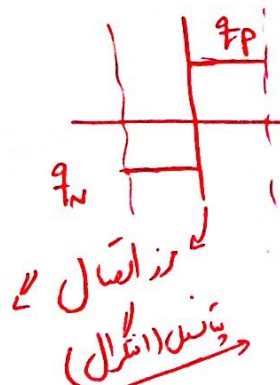 q_P
q_N
مرز اتصال
پتانسیل (انتگرال)